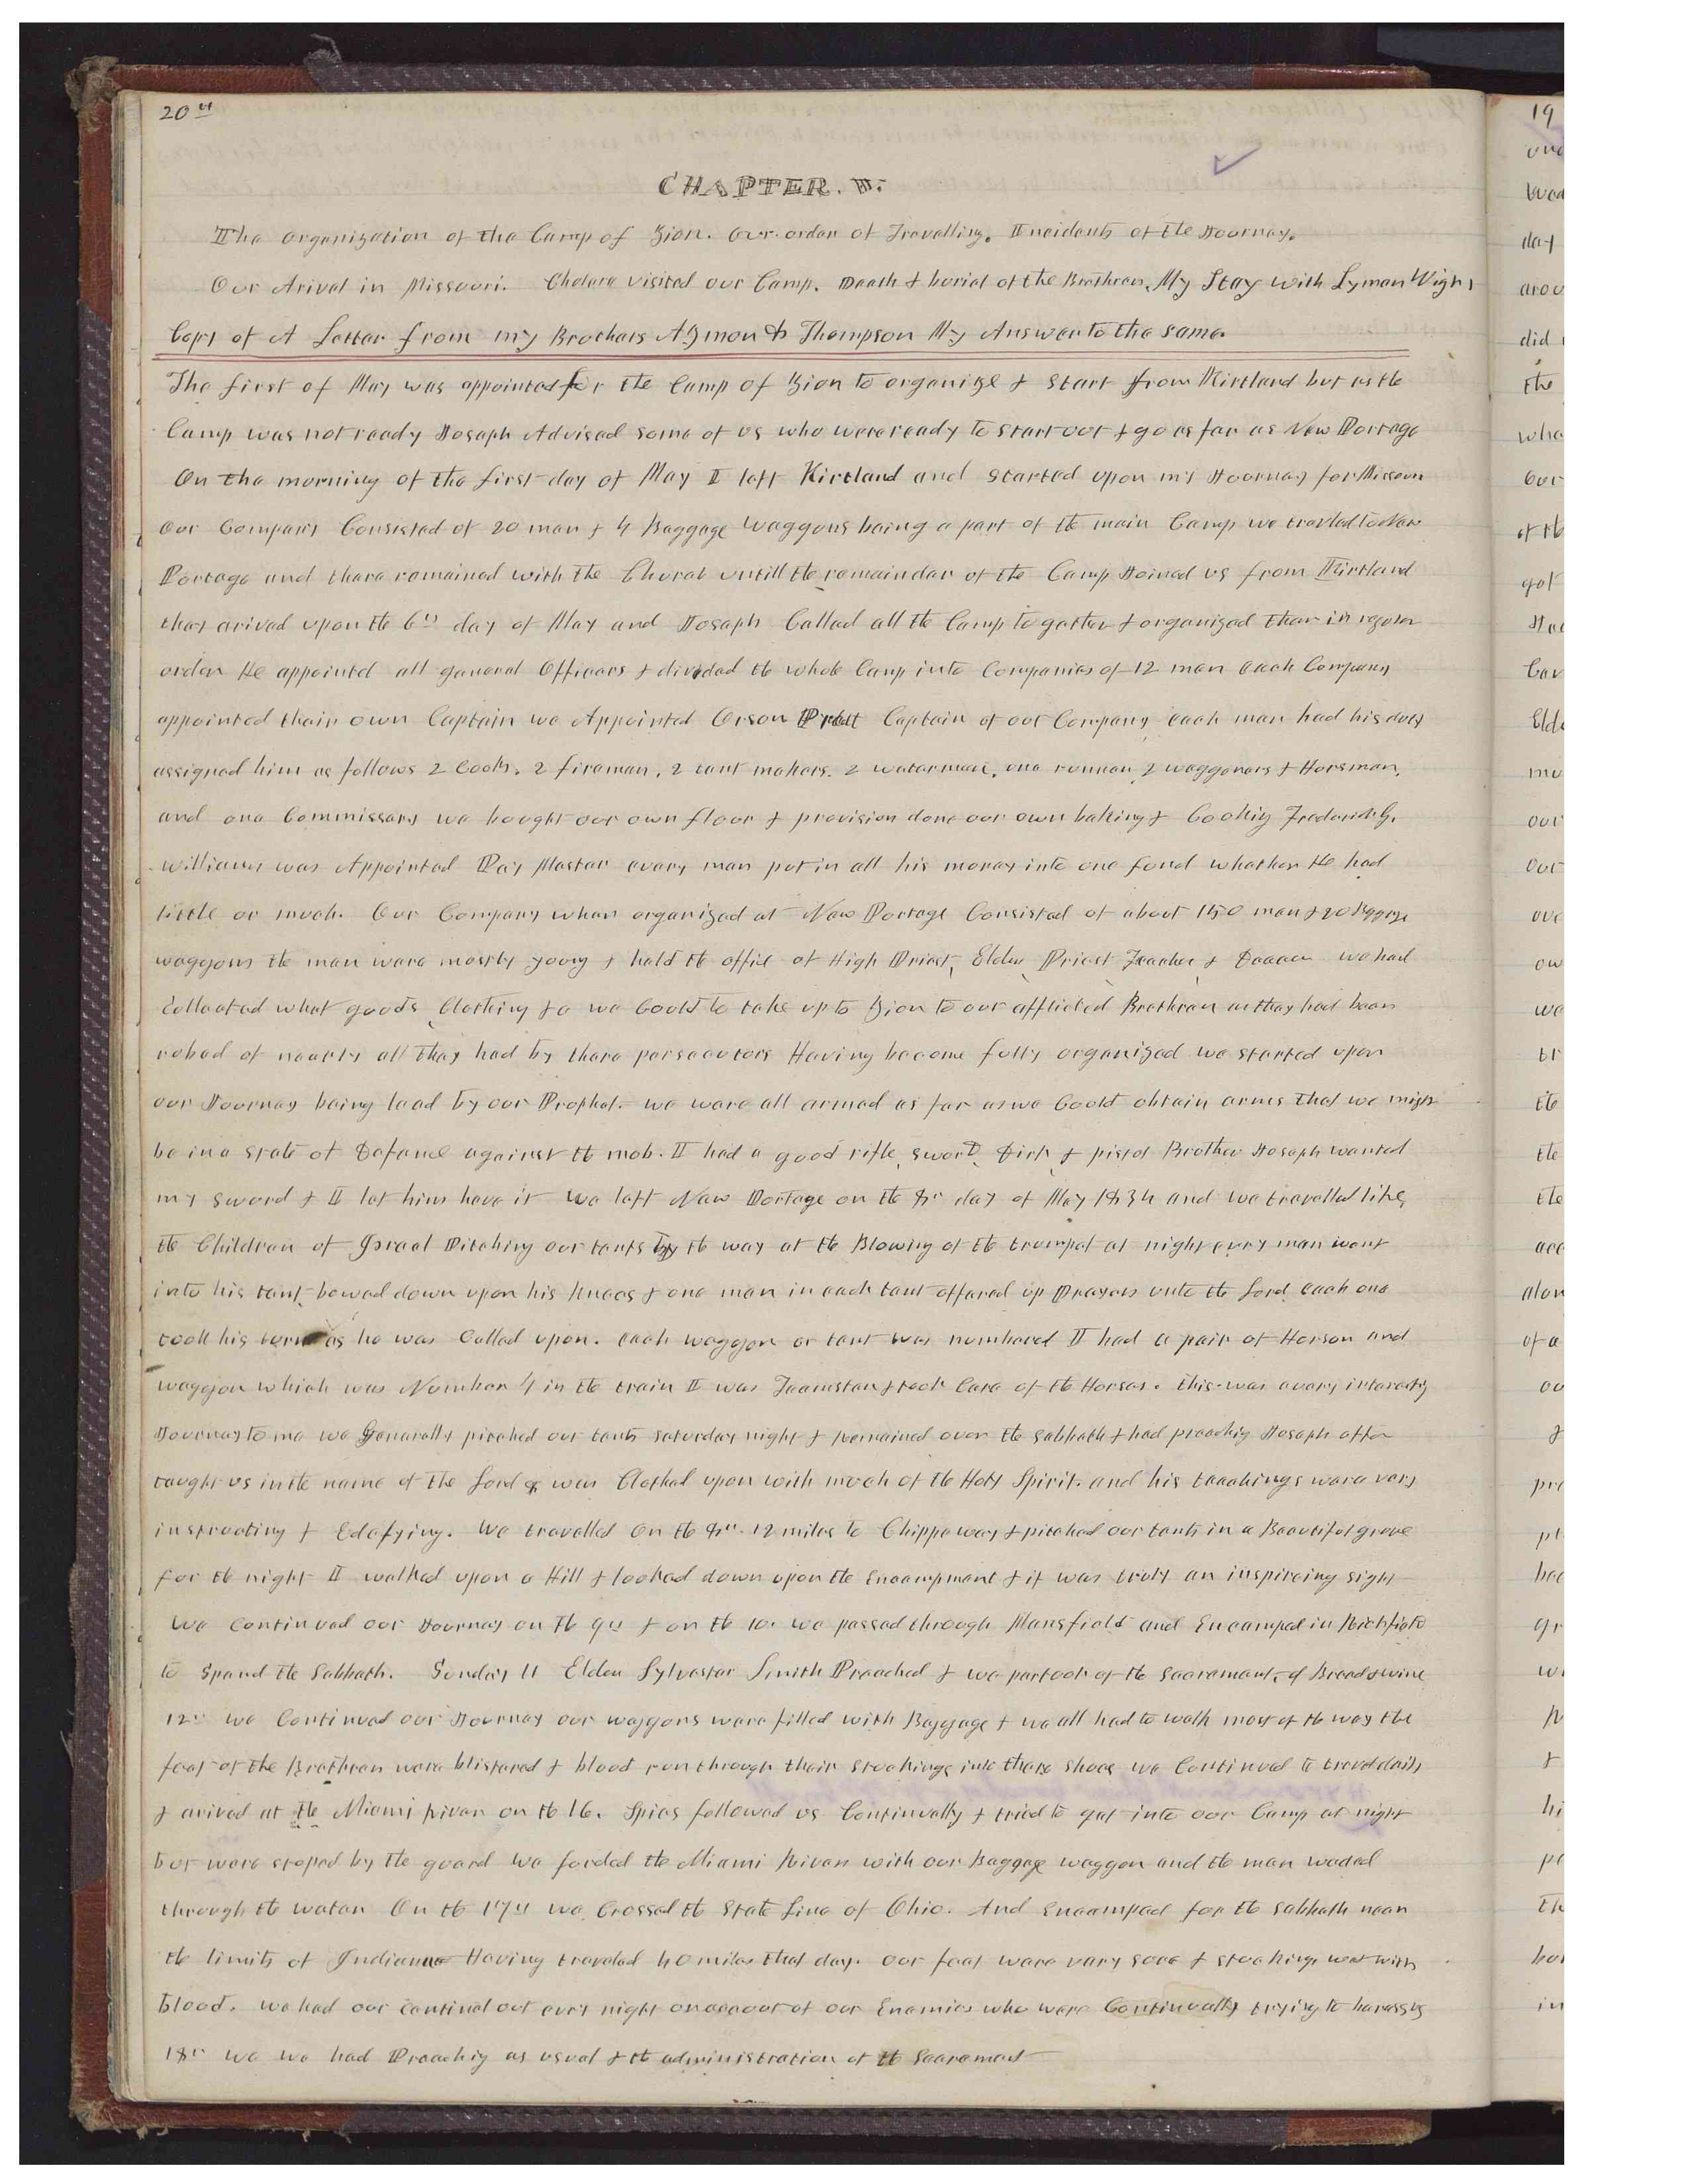 20th
CHAPTER. V.
The organization of the Camp of Zion. Our order of Travelling. Incidents of the Journey.
Our Arival in Missouri. Cholera visited our Camp. Death & burial of the Brethren. My Stay with Lyman Wight
Copy of A Letter from my Brothers Azmon & Thompson My Answer to the same.
The first of May was appointed for the Camp of Zion to organize & start from Kirtland but as the
Camp was not ready Joseph Advised some of us who were ready to start out & go as far as New Portage
On the morning of the first day of May I left Kirtland and started upon my Journey for Missouri
Our Company Consisted of 20 men & 4 Baggage waggons being a part of the main Camp we traveled to New
Portage and there remained with the Church untill the remainder of the Camp Joined us from Kirtland
they arived upon the 6th day of May and Joseph Called all the Camp to gether & organized them in regular
order He appointed all general Officers & divided the whole Camp into Companies of 12 men each Company
appointed their own Captain we Appointed Orson Pratt Captain of our Company each man had his duty
assigned him as follows 2 Cooks, 2 firemen, 2 tent makers. 2 watermen, one runner, 2 waggoners & Horsman,
and one Commissary we bought our own flour & provision done our own baking & Cooking Frederick G.
Williams was Appointed Pay Master every man put in all his money into one fund whether He had
little or much. Our Company when organized at New Portage Consisted of about 150 men & 20 Baggage
waggons the men were mostly young & held the office of High Priest, Elder, Priest Teacher & Deacon we had
Collected what goods, Clothing &c we Could to take up to Zion to our afflicted Brethren as they had been
robed of nearly all they had by there persecutors Having become fully organized we started upon
our Journey being lead by our Prophet. we were all armed as far as we Could obtain arms that we might
be in a state of Defence against the mob. I had a good rifle, sword, Dirk, & pistol Brother Joseph wanted
my sword & I let him have it we left New Portage on the 8th day of May 1834 and we travelled like
the Children of Israel Pitching our tents by the way at the Blowing of the trumpet at night every man went
into his tent, bowed down upon his knees & one man in each tent offered up Prayers unto the Lord. each one
took his turn as he was Called upon. each waggon or tent was numbered I had a pair of Horses and
waggon which was Number 4 in the train I was Teamster & took Care of the Horses. this was a very interesting
Journey to me we Generally pitched our tents saturday night & remained over the Sabbath & had preaching Joseph often
taught us in the name of the Lord & was Clothed upon with much of the Holy Spirit. and his teachings were very
instructing & Edefying. We travelled On the 8th 12 miles to Chippeway & pitched our tents in a Beautiful grove
for the night I walked upon a Hill & looked down upon the Encampment & it was truly an inspireing sight
We Continued our Journey on the 9th & on the 10. we passed through Mansfield and Encamped in Richfield
to spend the Sabbath. Sunday 11 Elder Sylvester Smith Preached & we partook of the Sacrament, of Bread & wine
12th we Continued our Journey our waggons were filled with Baggage & we all had to walk most of the way the
feet of the Brethren were blistered & blood run through their stockings into there shoes we Continued to travel daily
& arived at the Miami River on the 16. Spies followed us Continually & tried to get into our Camp at night
but were stoped by the guard We forded the Miami River with our Baggage waggon and the men waded
through the water On the 17th we Crossed the State Line of Ohio. And Encamped for the Sabbath near
the limits of Indiana Having traveled 40 miles that day. our feet were very sore & stockings wet with
blood. we had our Centinel out every night on account of our Enemies who were Continually trying to harass us
18th we we had Preaching as usual & the administration of the Sacrament
19
day
did
the